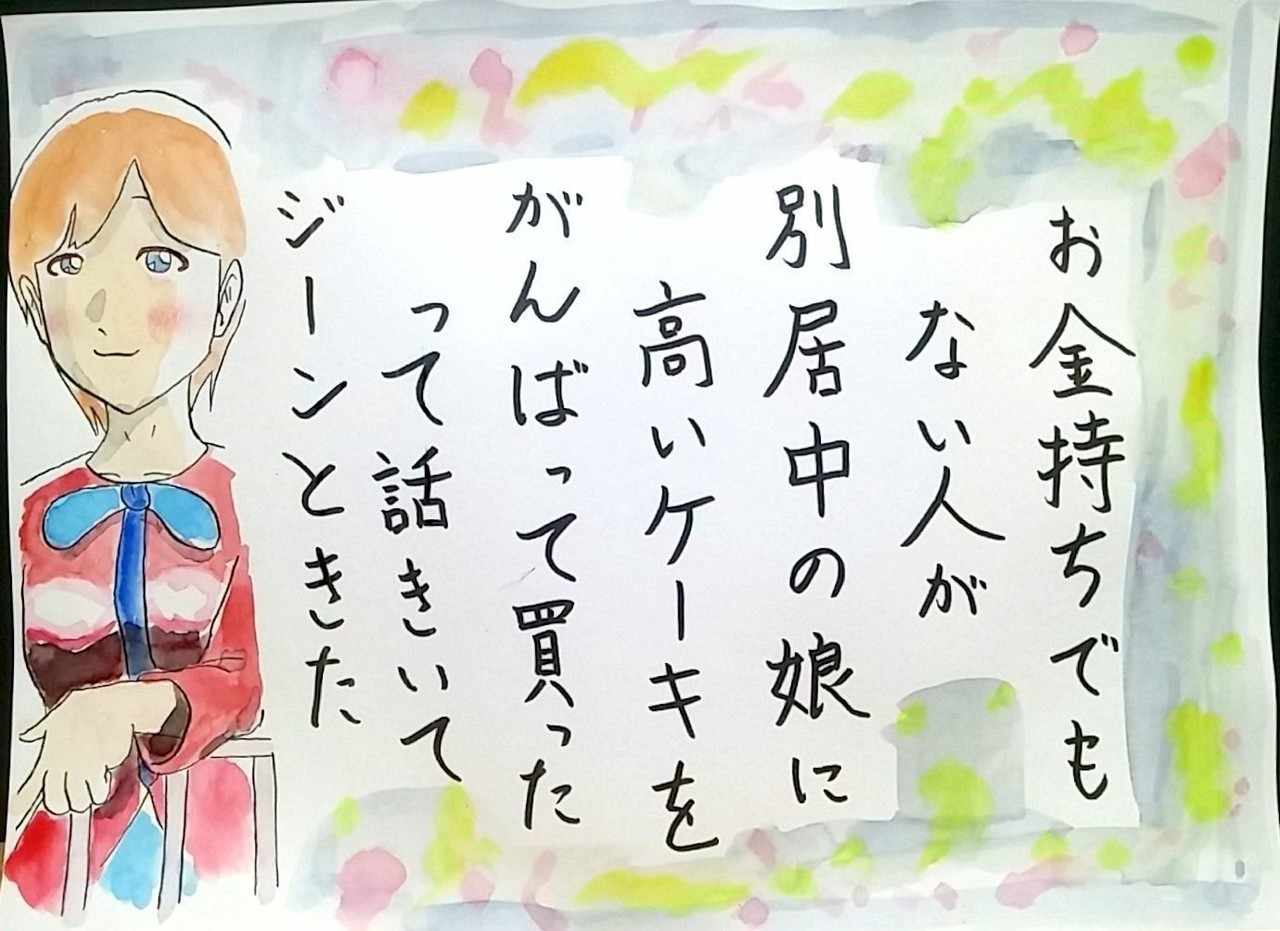 お金持ちでも
ない人が
別居中の娘に
高いケーキを
がんばって買った
って話きいて
ジーンときた